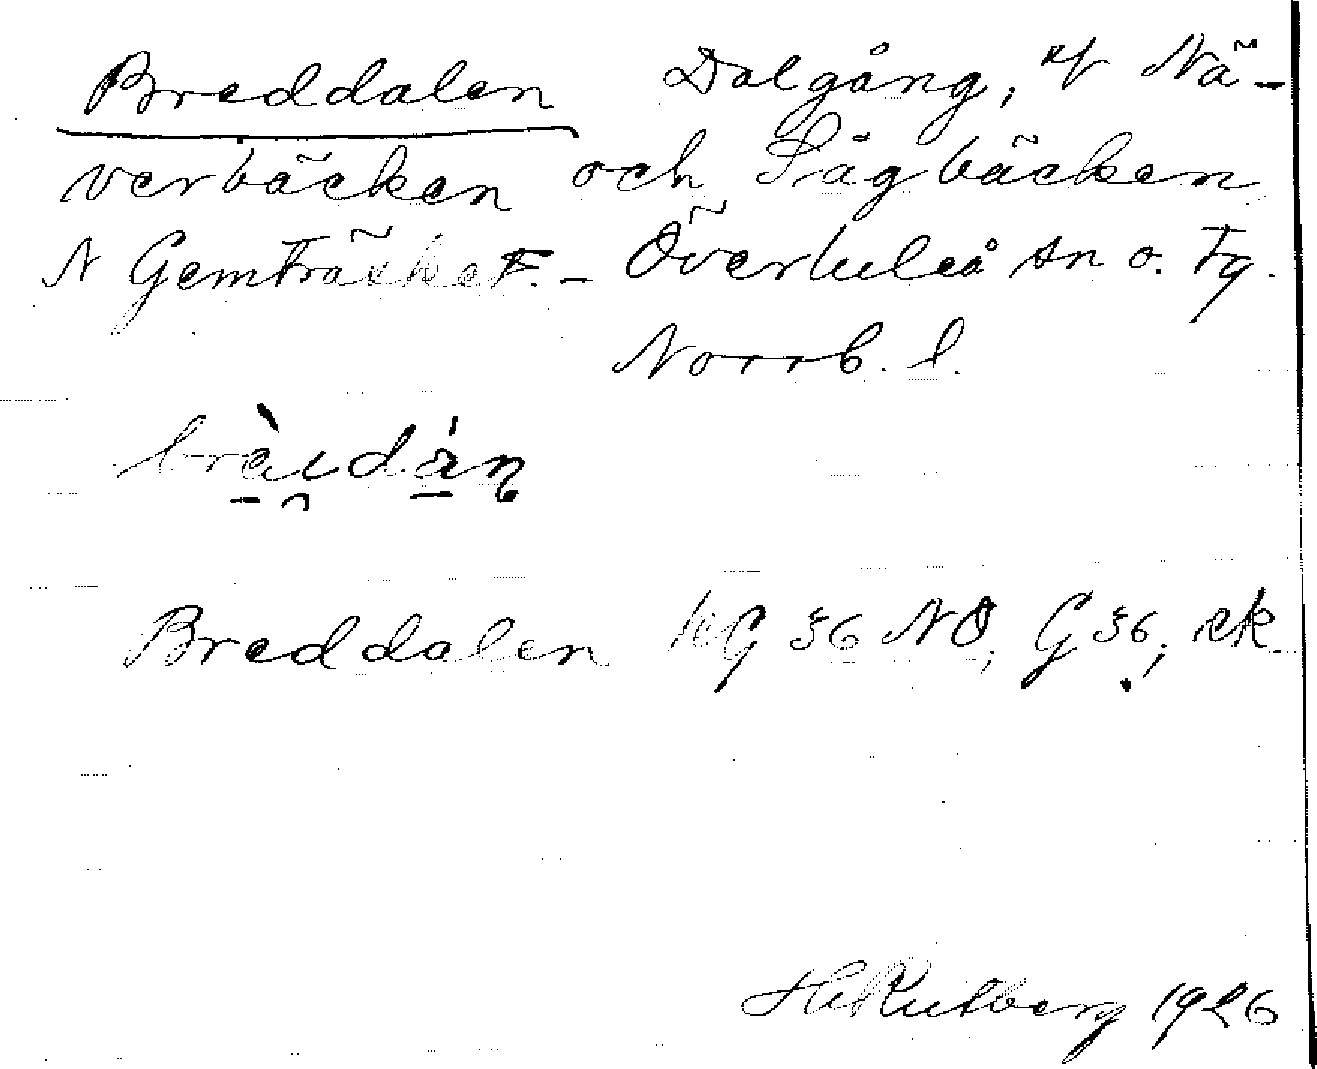 Breddalen Dalgång, vf Nä-
verbäcken och Sågbäcken
N Gemträsket. - Överluleå sn o. tg.
Norrb. l.
Breddalen HG 36 NO, G 36, ek
H Rutberg 1926